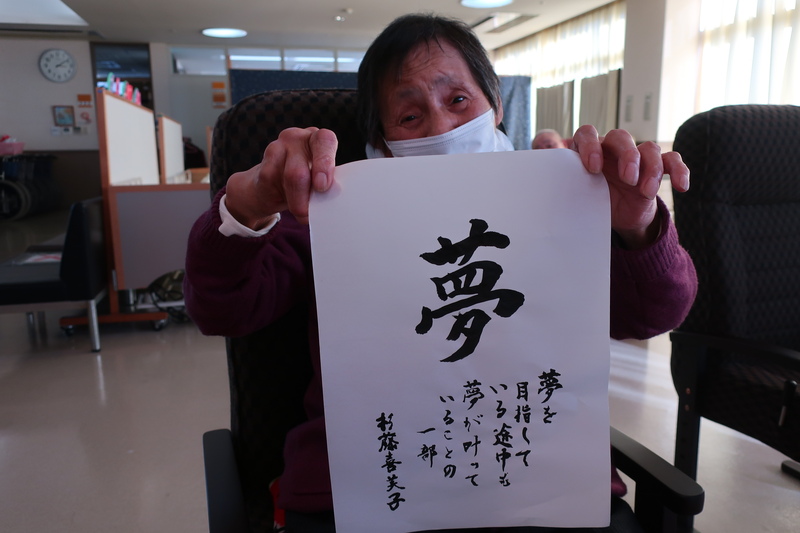 夢
夢を
目指して
いる途中も
夢が叶って
いることの
一部
杉藤喜美子